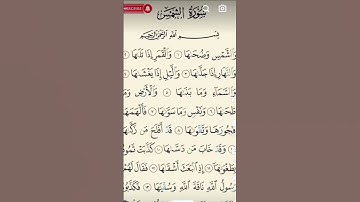 سُورَةُ الشَّمْسِ
بِسْمِ اللَّهِ الرَّحْمَٰنِ الرَّحِيمِ
وَالشَّمْسِ وَضُحَاهَا ١ وَالْقَمَرِ إِذَا تَلَاهَا ٢
وَالنَّهَارِ إِذَا جَلَّاهَا ٣ وَاللَّيْلِ إِذَا يَغْشَاهَا ٤
وَالسَّمَاءِ وَمَا بَنَاهَا ٥ وَالْأَرْضِ وَمَا
طَحَاهَا ٦ وَنَفْسٍ وَمَا سَوَّاهَا ٧ فَأَلْهَمَهَا
فُجُورَهَا وَتَقْوَاهَا ٨ قَدْ أَفْلَحَ مَن زَكَّاهَا ٩
وَقَدْ خَابَ مَن دَسَّاهَا ١٠ كَذَّبَتْ ثَمُودُ
بِطَغْوَاهَا ١١ إِذِ انبَعَثَ أَشْقَاهَا ١٢ فَقَالَ لَهُمْ
رَسُولُ اللَّهِ نَاقَةَ اللَّهِ وَسُقْيَاهَا ١٣ فَكَذَّبُوهُ